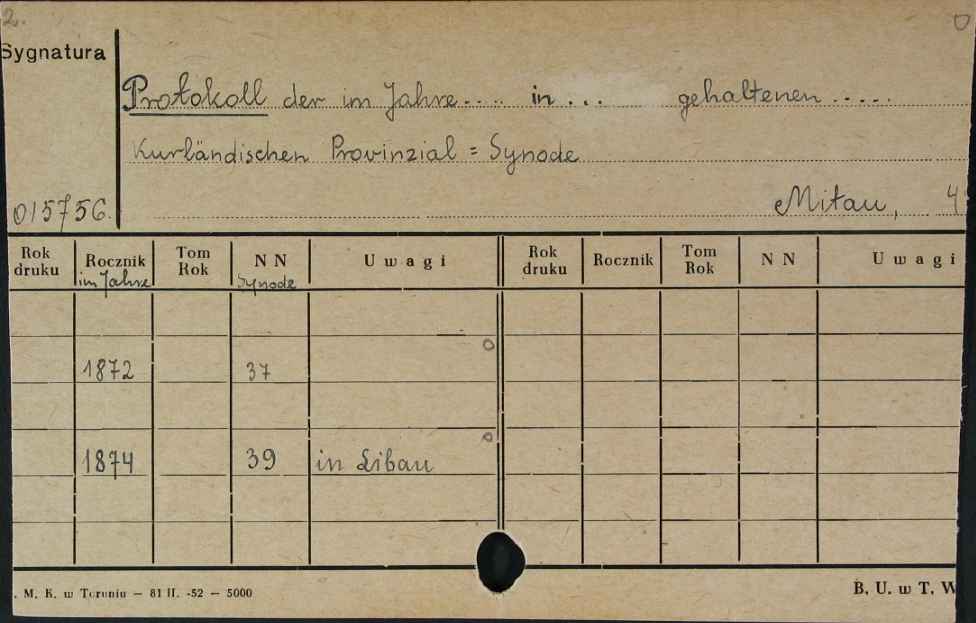 2.
Sygnatura
Protokoll der im Jahre.... in ... gehaltenen .....
Kurländischen Provinzial = Synode
015756.
Mitau, 4
Rok druku Rocznik Tom Rok NN Uwagi Rok druku Rocznik Tom Rok NN Uwagi
im Jahre Synode
1872 37
1874 39 in Libau
. M. K. w Toruniu — 81 II. -52 — 5000 B. U. w T. W